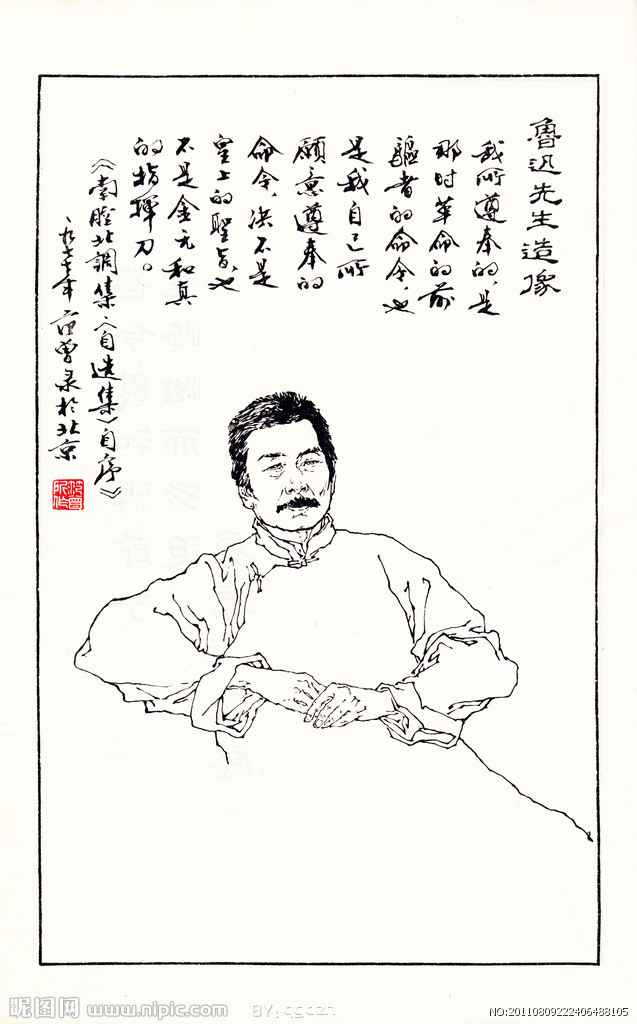 魯迅先生造像
我所遵奉的,是
那时革命的前
驅者的命令,也
是我自己所
願意遵奉的
命令,决不是
皇上的聖旨,也
不是金元和真
的指揮刀。
《南腔北調集·〈自選集〉自序》
一九七七年 范曾录於北京
昵图网 www.nipic.com
NO:20110809222406488105